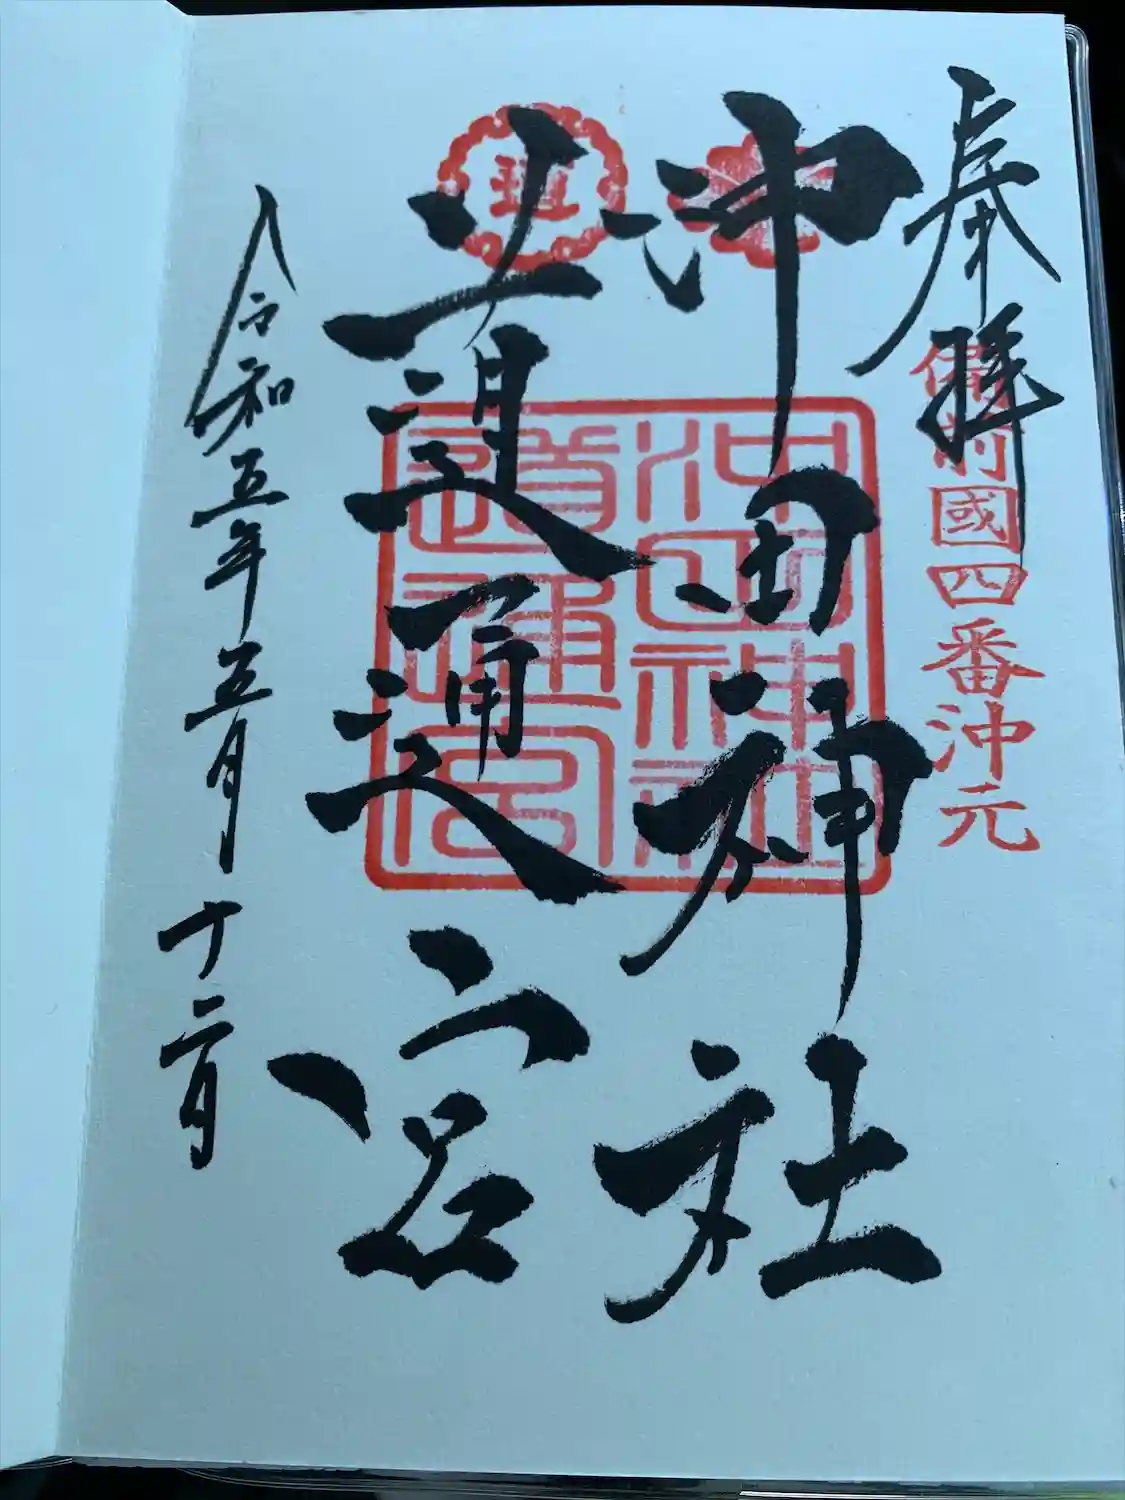 奉拝
備前國四番沖元
沖田神社
道通宮
沖田神社
道通宮
令和五年五月十二日